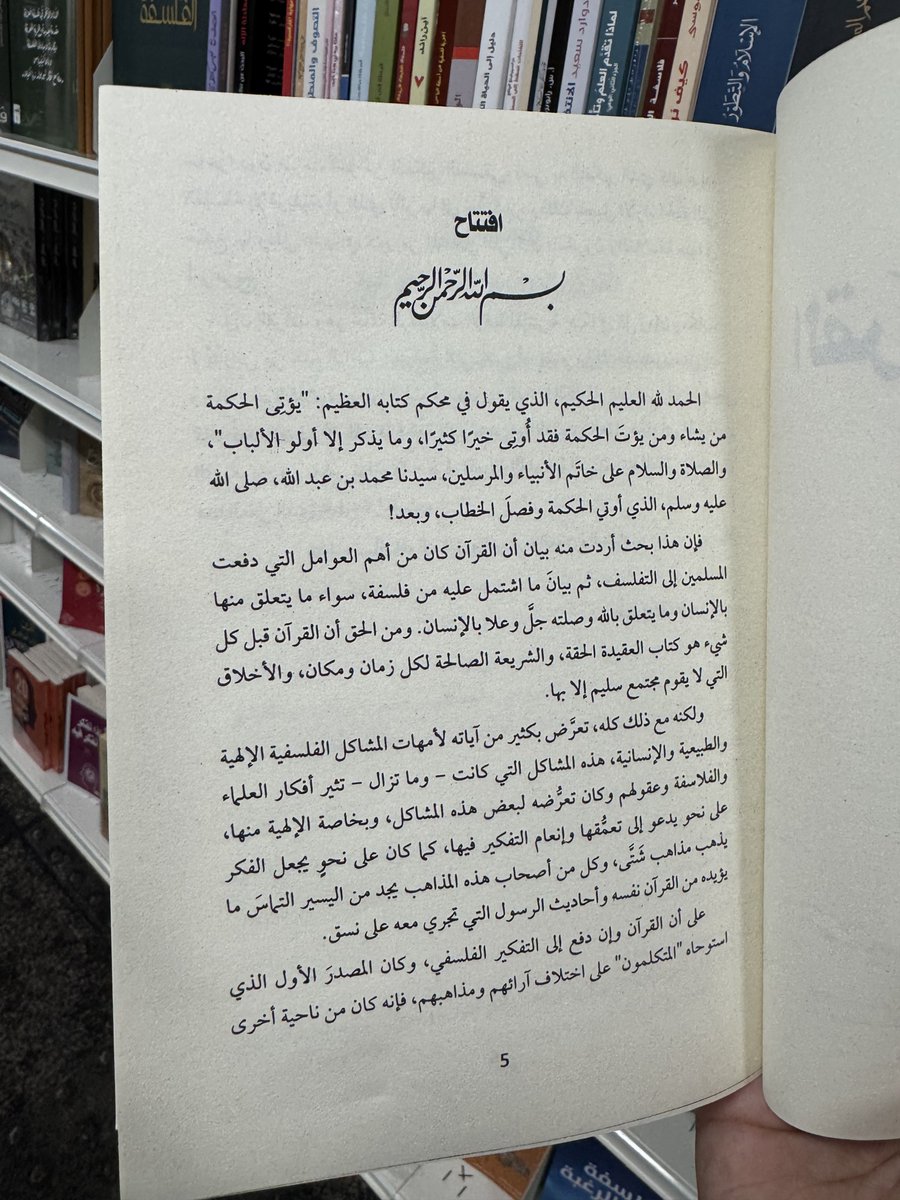 الفلسفة
التصوف والمنطق
ابن رشد
دليل إلى
إدوارد سعيد
لماذا نتقدم العلم
فلاسفة
كيف
الإسلام والتطور
افتتاح
بسم الله الرحمن الرحيم
الحمد لله العليم الحكيم، الذي يقول في محكم كتابه العظيم: "يؤتِى الحكمة
من يشاء ومن يؤتَ الحكمة فقد أُوتِى خيرًا كثيرًا، وما يذكر إلا أولو الألباب"،
والصلاة والسلام على خاتَم الأنبياء والمرسلين، سيدنا محمد بن عبد الله، صلى الله
عليه وسلم، الذي أوتي الحكمة وفصلَ الخطاب، وبعد!
فإن هذا بحث أردت منه بيان أن القرآن كان من أهم العوامل التي دفعت
المسلمين إلى التفلسف، ثم بيانَ ما اشتمل عليه من فلسفة، سواء ما يتعلق منها
بالإنسان وما يتعلق بالله وصلته جلَّ وعلا بالإنسان. ومن الحق أن القرآن قبل كل
شيء هو كتاب العقيدة الحقة، والشريعة الصالحة لكل زمان ومكان، والأخلاق
التي لا يقوم مجتمع سليم إلا بها.
ولكنه مع ذلك كله، تعرَّض بكثير من آياته لأمهات المشاكل الفلسفية الإلهية
والطبيعية والإنسانية، هذه المشاكل التي كانت – وما تزال – تثير أفكار العلماء
والفلاسفة وعقولهم وكان تعرُّضه لبعض هذه المشاكل، وبخاصة الإلهية منها،
على نحو يدعو إلى تعمُّقها وإنعام التفكير فيها، كما كان على نحوٍ يجعل الفكر
يذهب مذاهب شَتَّى، وكل من أصحاب هذه المذاهب يجد من اليسير التماسَ ما
يؤيده من القرآن نفسه وأحاديث الرسول التي تجري معه على نسق.
على أن القرآن وإن دفع إلى التفكير الفلسفي، وكان المصدرَ الأول الذي
استوحاه "المتكلمون" على اختلاف آرائهم ومذاهبهم، فإنه كان من ناحية أخرى
5